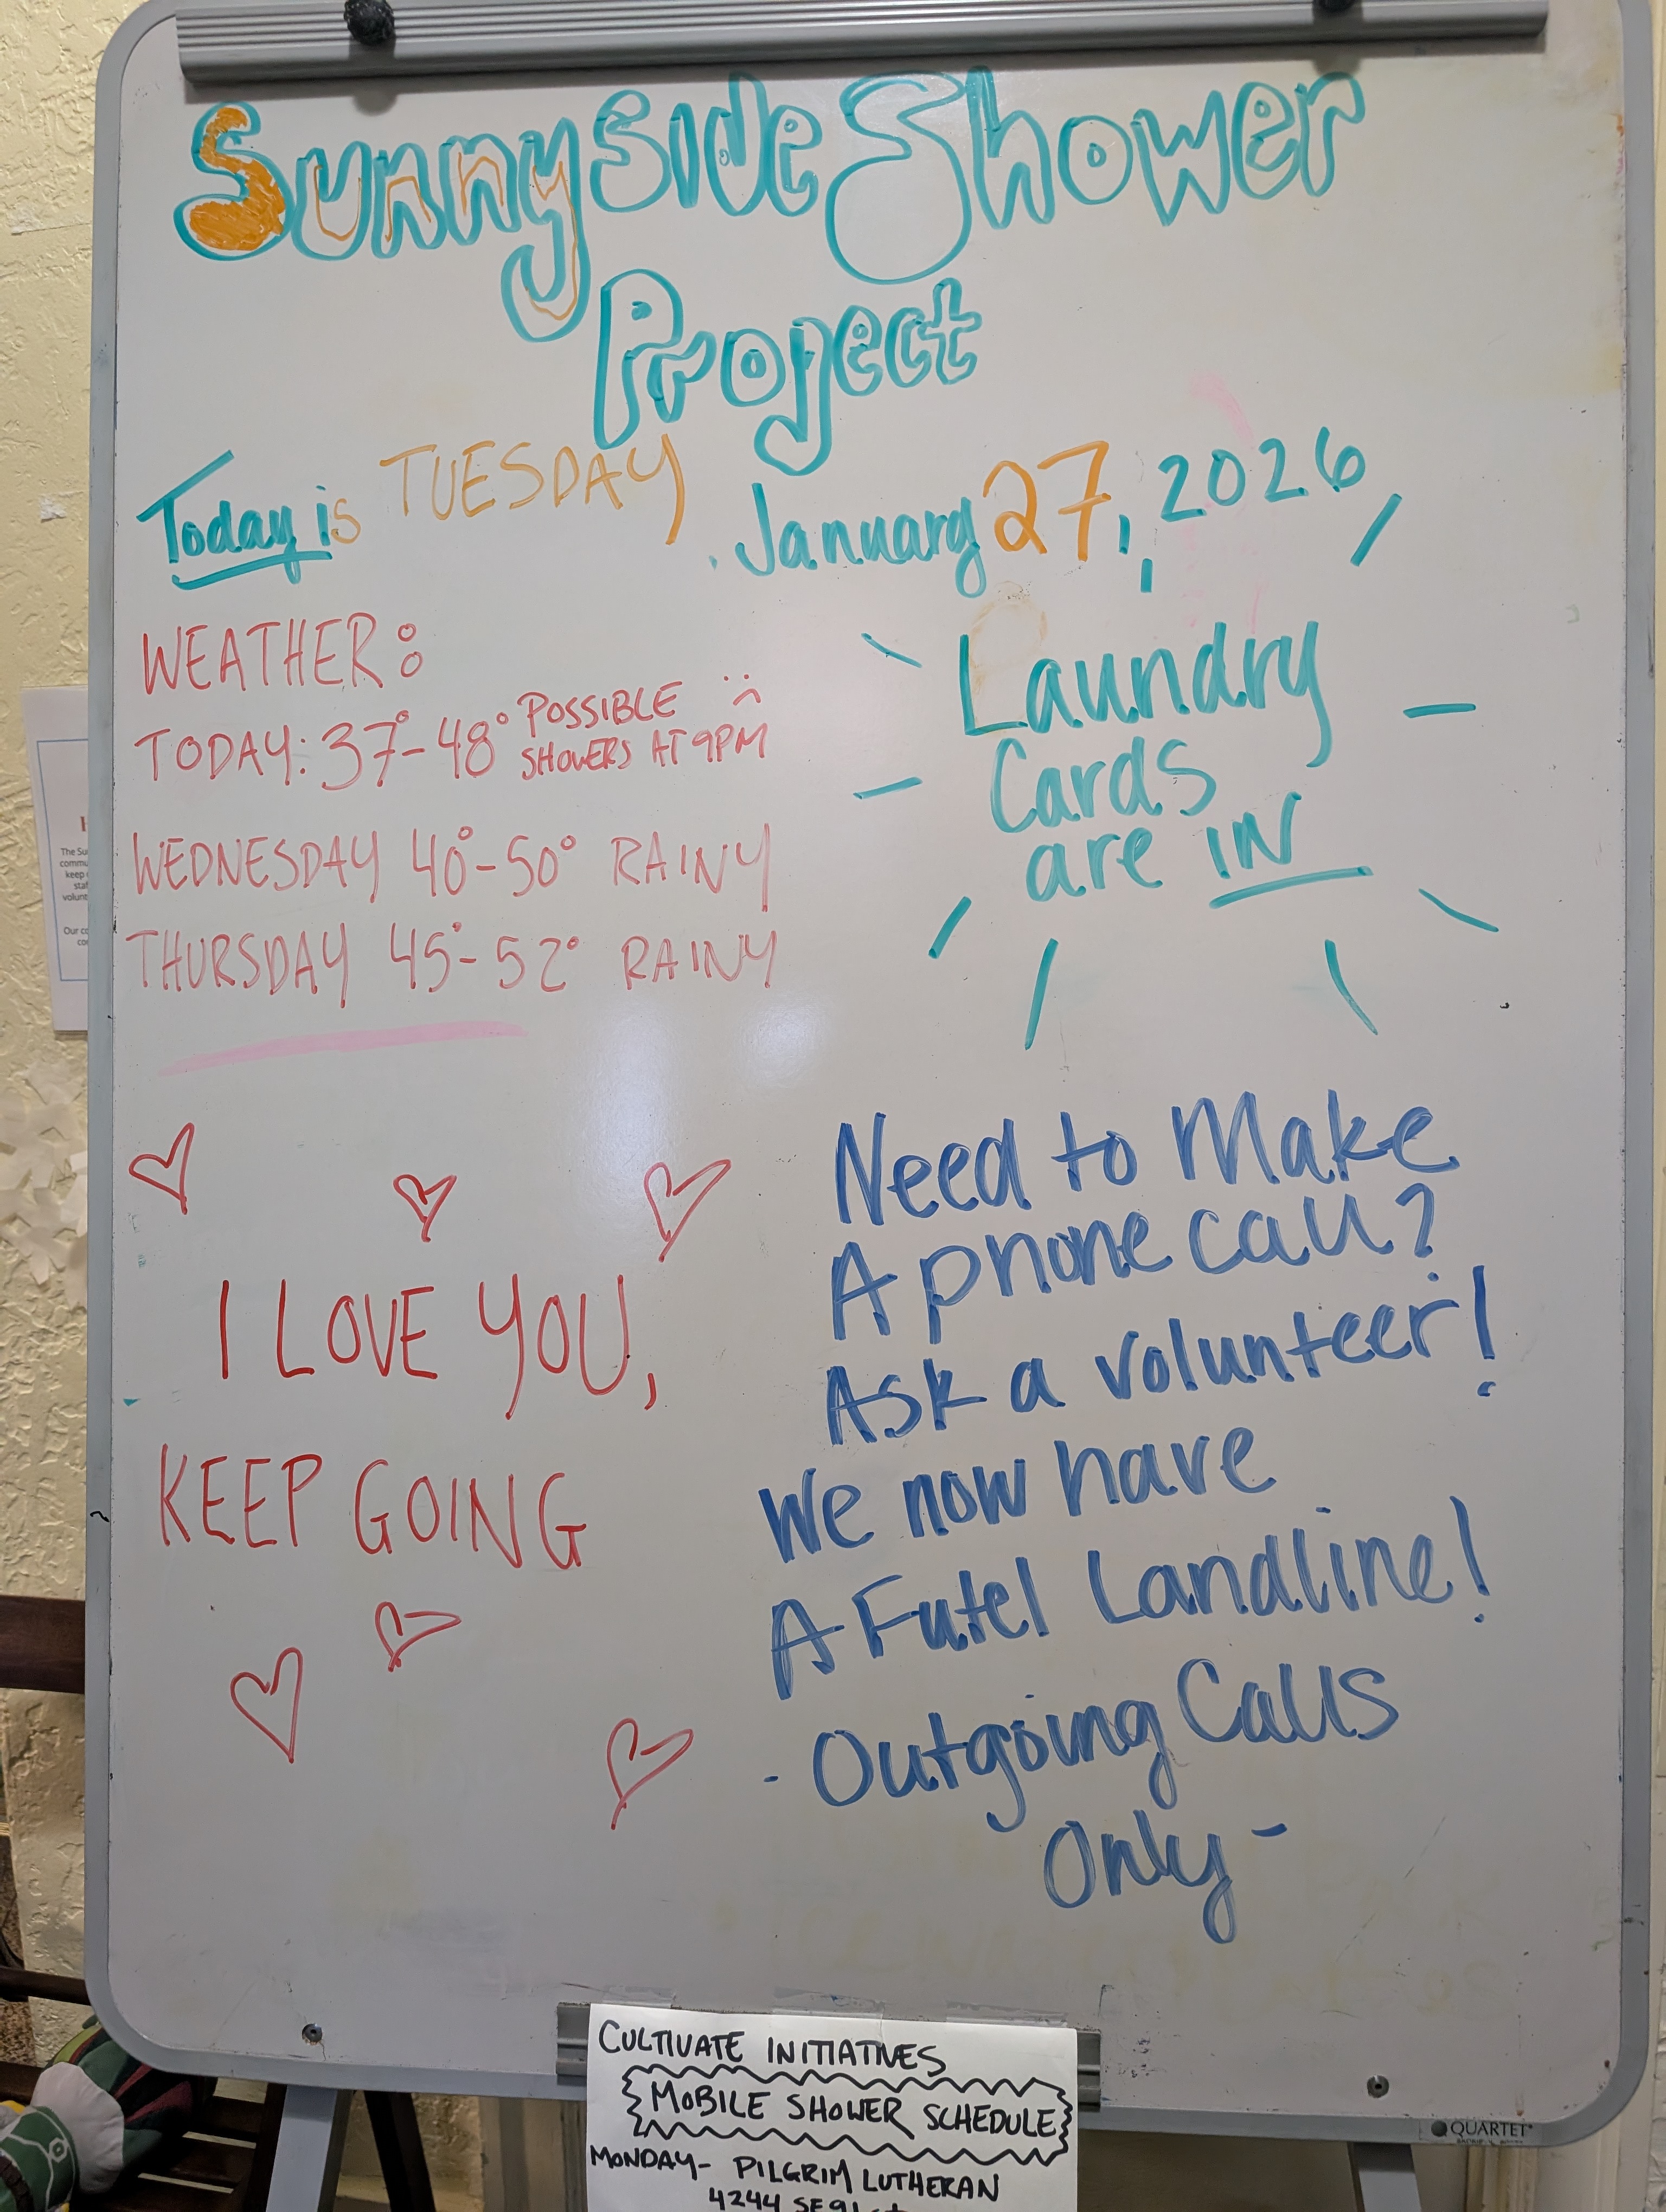 Sunnyside Shower
Project
Today is TUESDAY January 27, 2026
WEATHER:
TODAY: 37°-48° POSSIBLE
SHOWERS AT 9PM
WEDNESDAY 40°-50° RAINY
THURSDAY 45°-52° RAINY
Laundry
Cards
are IN
I LOVE YOU,
KEEP GOING
Need to Make
A phone call?
Ask a volunteer!
We now have
A Futel Landline!
- Outgoing Calls
Only -
CULTIVATE INITIATIVES
MOBILE SHOWER SCHEDULE
MONDAY- PILGRIM LUTHERAN
4244 SE
QUARTET
The Su
commu
keep
staf
volunt
Our co
co